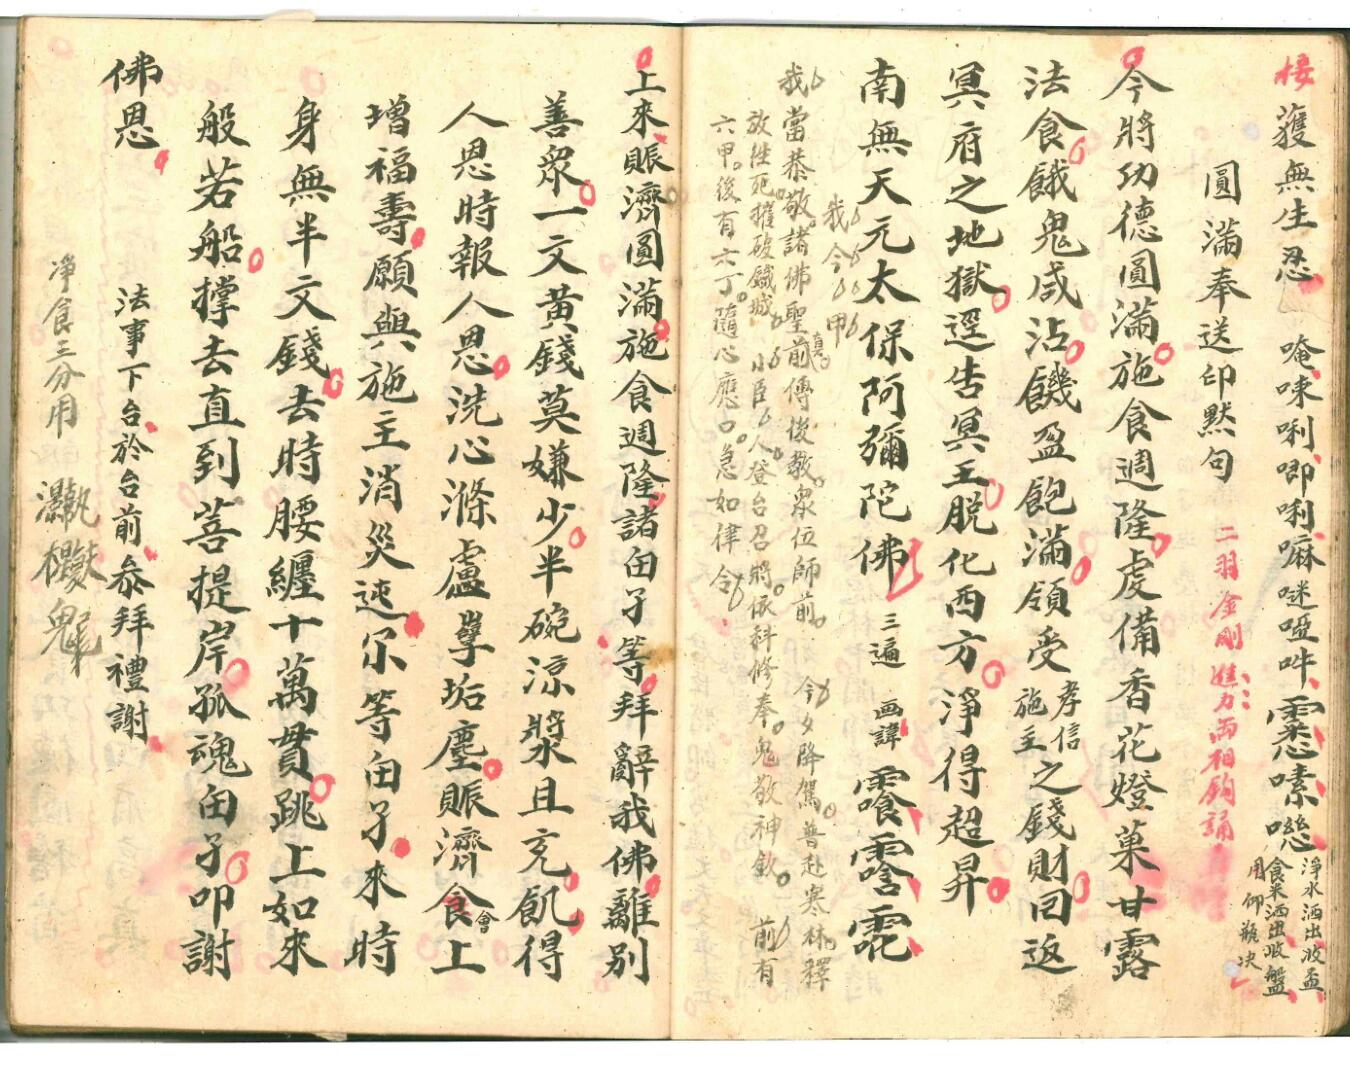 接獲無生忍 唵唻唎唧唎嘛
淨水洒出收盃
食米洒出收盤
用仰瓶决
圓滿奉送印默句 二羽金剛進力両相鈎誦
今將功德圓滿施食週隆虔備香花燈菓甘露
法食餓鬼咸沾饑盈飽滿領受孝信施主之錢財回返
冥府之地獄逕告冥王脱化西方淨得超昇
南無天元太保阿彌陀佛 三遍 画諱
我今甲
我當恭敬諸佛聖真前傅後敬衆伍師前今夕降駕普赴寒林釋
放往死摧破鐵城小臣人登台召將依科修奉鬼敬神欽前有
六甲後有六丁隨心應口急如律令
上來賑濟圓滿施食週隆諸由子等拜辭我佛離别
善衆一文黄錢莫嫌少半碗凉漿且充飢得
人恩時報人恩洗心滌慮孽垢塵賑濟食會上
增福壽願與施主消災速尔等由子來時
身無半文錢去時腰纏十萬貫跳上如來
般若船撑去直到菩提岸孤魂由子叩謝
佛恩
法事下台於台前叅拜禮謝
净食三分用